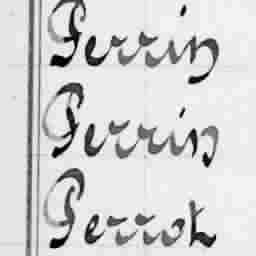 Perrin
Perrin
Perrot